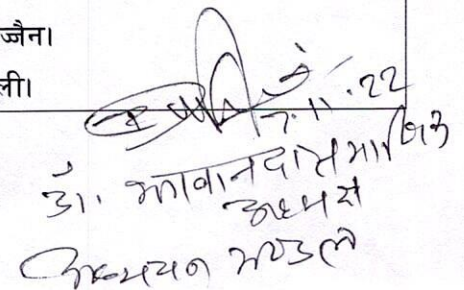 ज्जैन।
ली।
7.11.22
डॉ. भगवानदास
अध्यक्ष
अध्ययन मण्डल